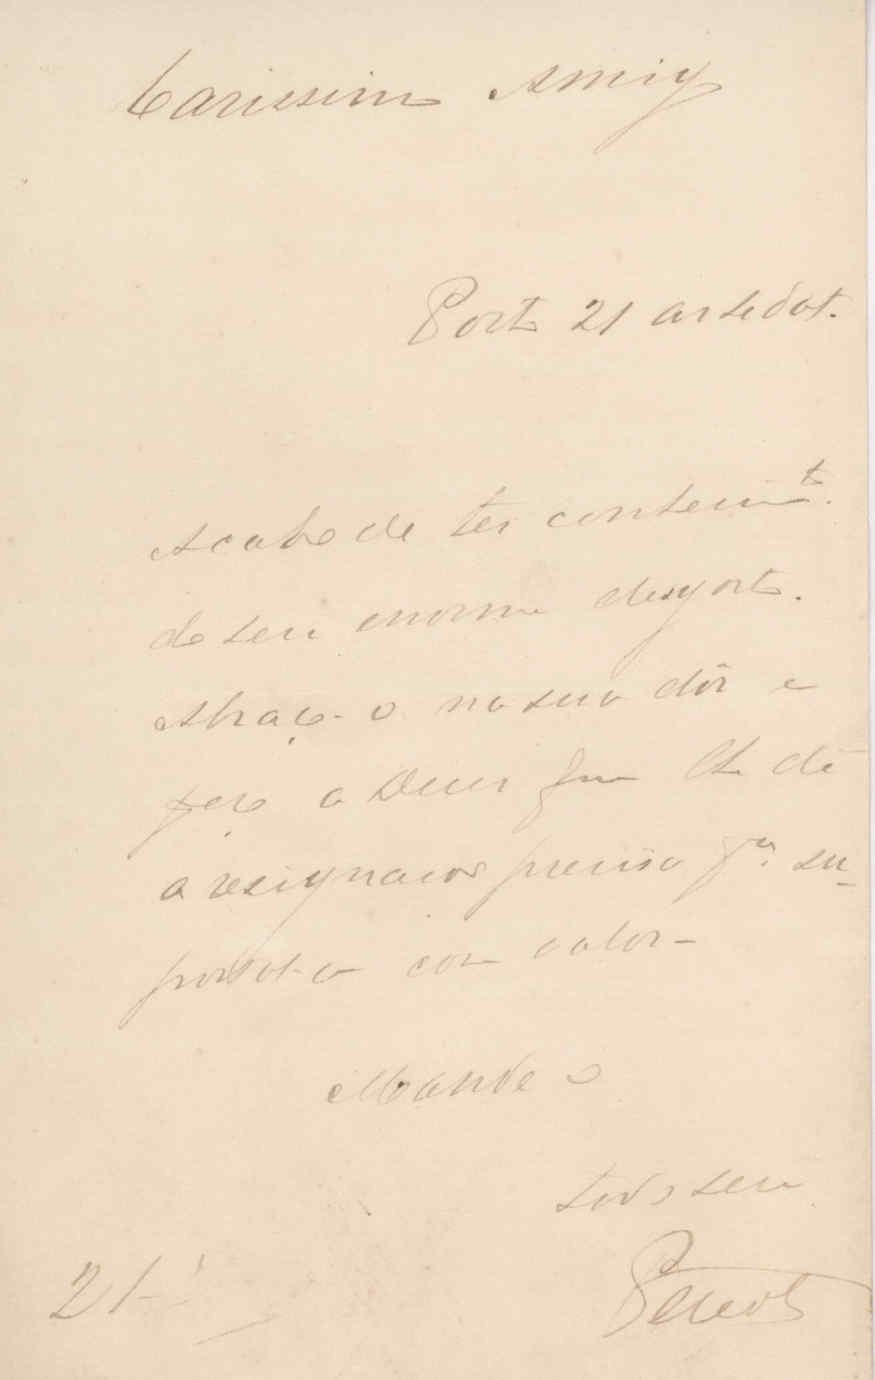 Carissimo Amigo
Porto 21
Acabo de ter conhecimto.
do seu enorme desgosto.
Abraço-o na sua dôr e
peço a Deus que lhe dê
a resignação precisa pa. su-
portal-a com valor-
Mande o
todo seu
21-